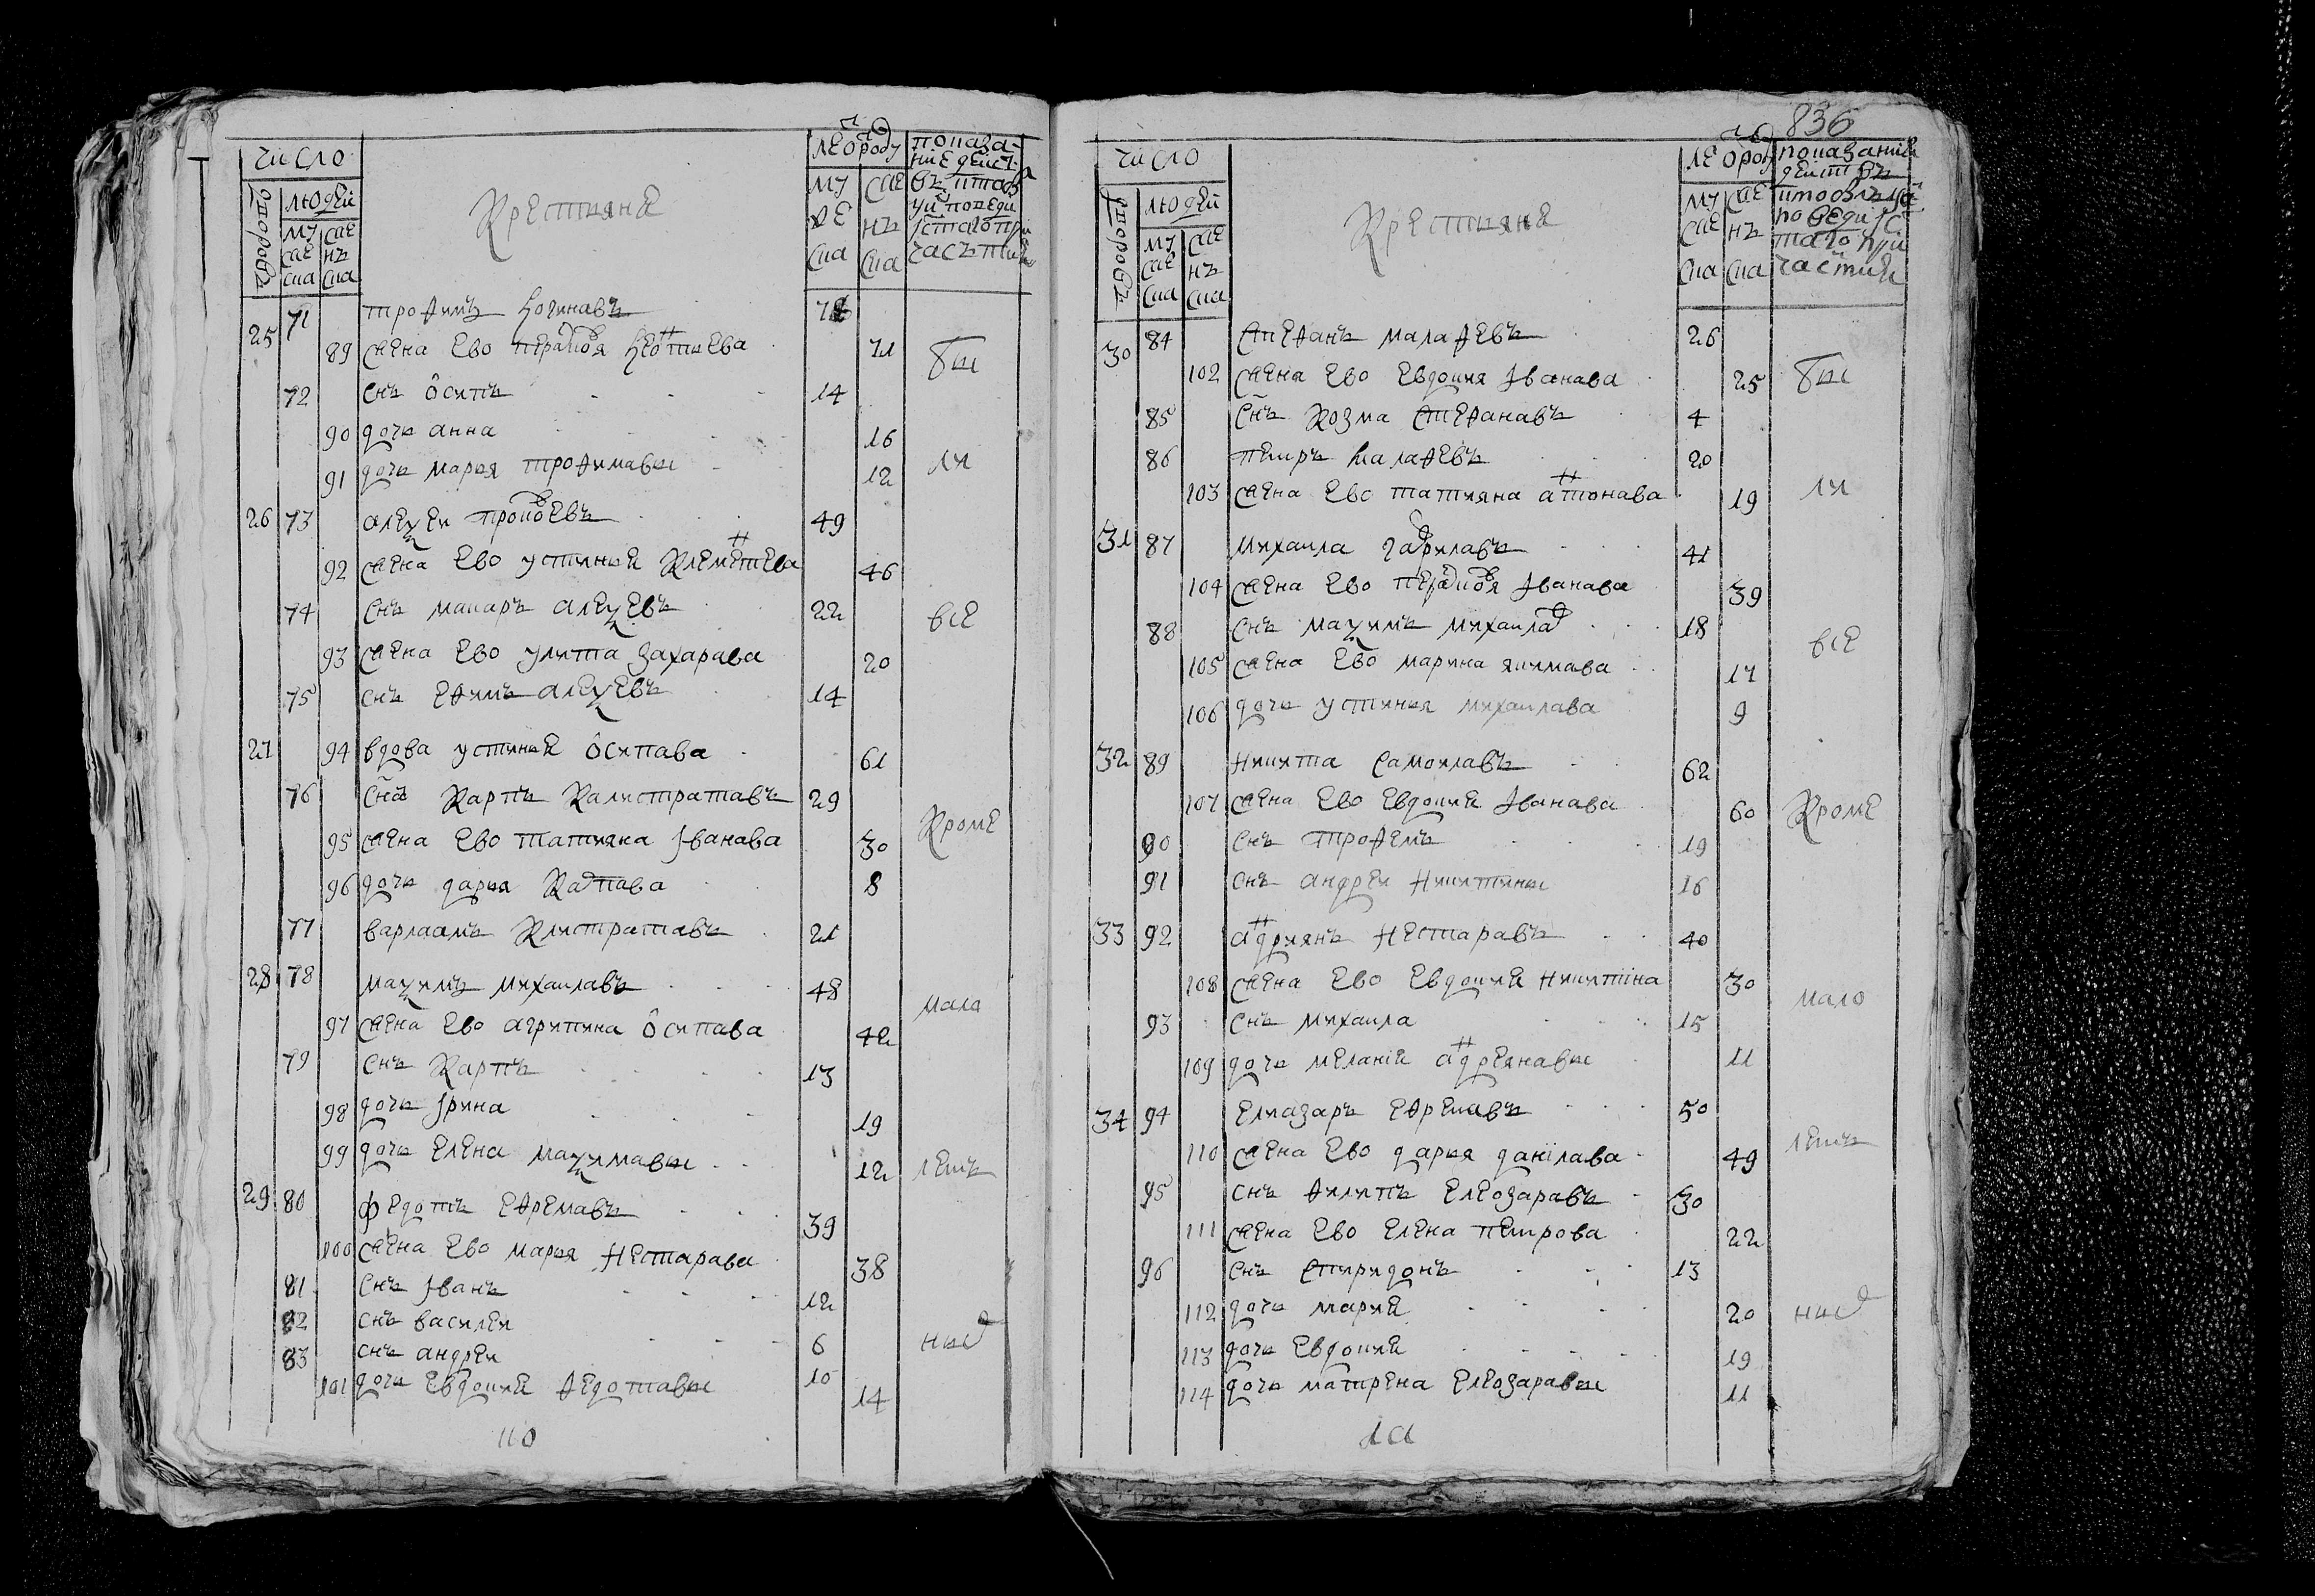 число
дворовъ
людей
мужеска
женска
Крестьяне
лет от роду
мужеска
женска
25 71 трофимъ логинавъ 74
89 жена ево праскоѳья леотиева 71
72 снъ осипъ 14
90 дочь анна 16
91 дочь марья трофимавы 12
26 73 алеѯеи прокоѳевъ 49
92 жена ево устинья Клеметиева 46
74 снъ макаръ алеѯеевъ 22
93 жена ево улита захарава 20
75 снъ ефимъ алеѯеевъ 14
27 94 вдова устинья осипава 61
76 снъ Карпъ Калистратавъ 29
95 жена ево татияна Іванава 30
96 дочь дарья Карпава 8
77 варлаамъ Клистратавъ 21
28 78 маѯимъ михаилавъ 48
97 жена ево агрипина осипава 42
79 снъ Карпъ 13
98 дочь Ірина 19
99 дочь елена маѯимавы 12
29 80 федотъ ефремавъ 39
100 жена ево марья нестарава 38
81 снъ Іванъ 12
82 снъ василеи 6
83 снъ андреи 10
101 дочь евдокия федотавы 14
бы
ли
все
Кроме
мало
летъ
ных
836
число
дворовъ
людей
мужеска
женска
Крестьяне
лет от роду
мужеска
женска
30 84 степанъ малафевъ 26
102 жена ево евдокия Іванава 25
85 снъ Козма степанавъ 4
86 петръ малафевъ 20
103 жена ево татияна атонава 19
31 87 михаила гаврилавъ 41
104 жена ево праскоѳья Іванава 39
88 снъ маѯимъ михаилав 18
105 жена ево марина якимава 17
106 дочь устинья михаилава 9
32 89 никита самоилавъ 62
107 жена ево евдокия Іванава 60
90 снъ трофемъ 19
91 снъ андреи никитины 16
33 92 адриянъ нестаравъ 40
108 жена ево евдокия никитіна 30
93 снъ михаила 15
109 дочь меланія адреянавы 11
34 94 елиазаръ ефремавъ 50
110 жена ево дарья данілава 49
95 снъ филипъ елеозаравъ 30
111 жена ево елена петрова 22
96 снъ спиридонъ 13
112 дочь мария 20
113 дочь евдокия 19
114 дочь матрена елеозаравы 11
бы
ли
все
Кроме
мало
летъ
ных